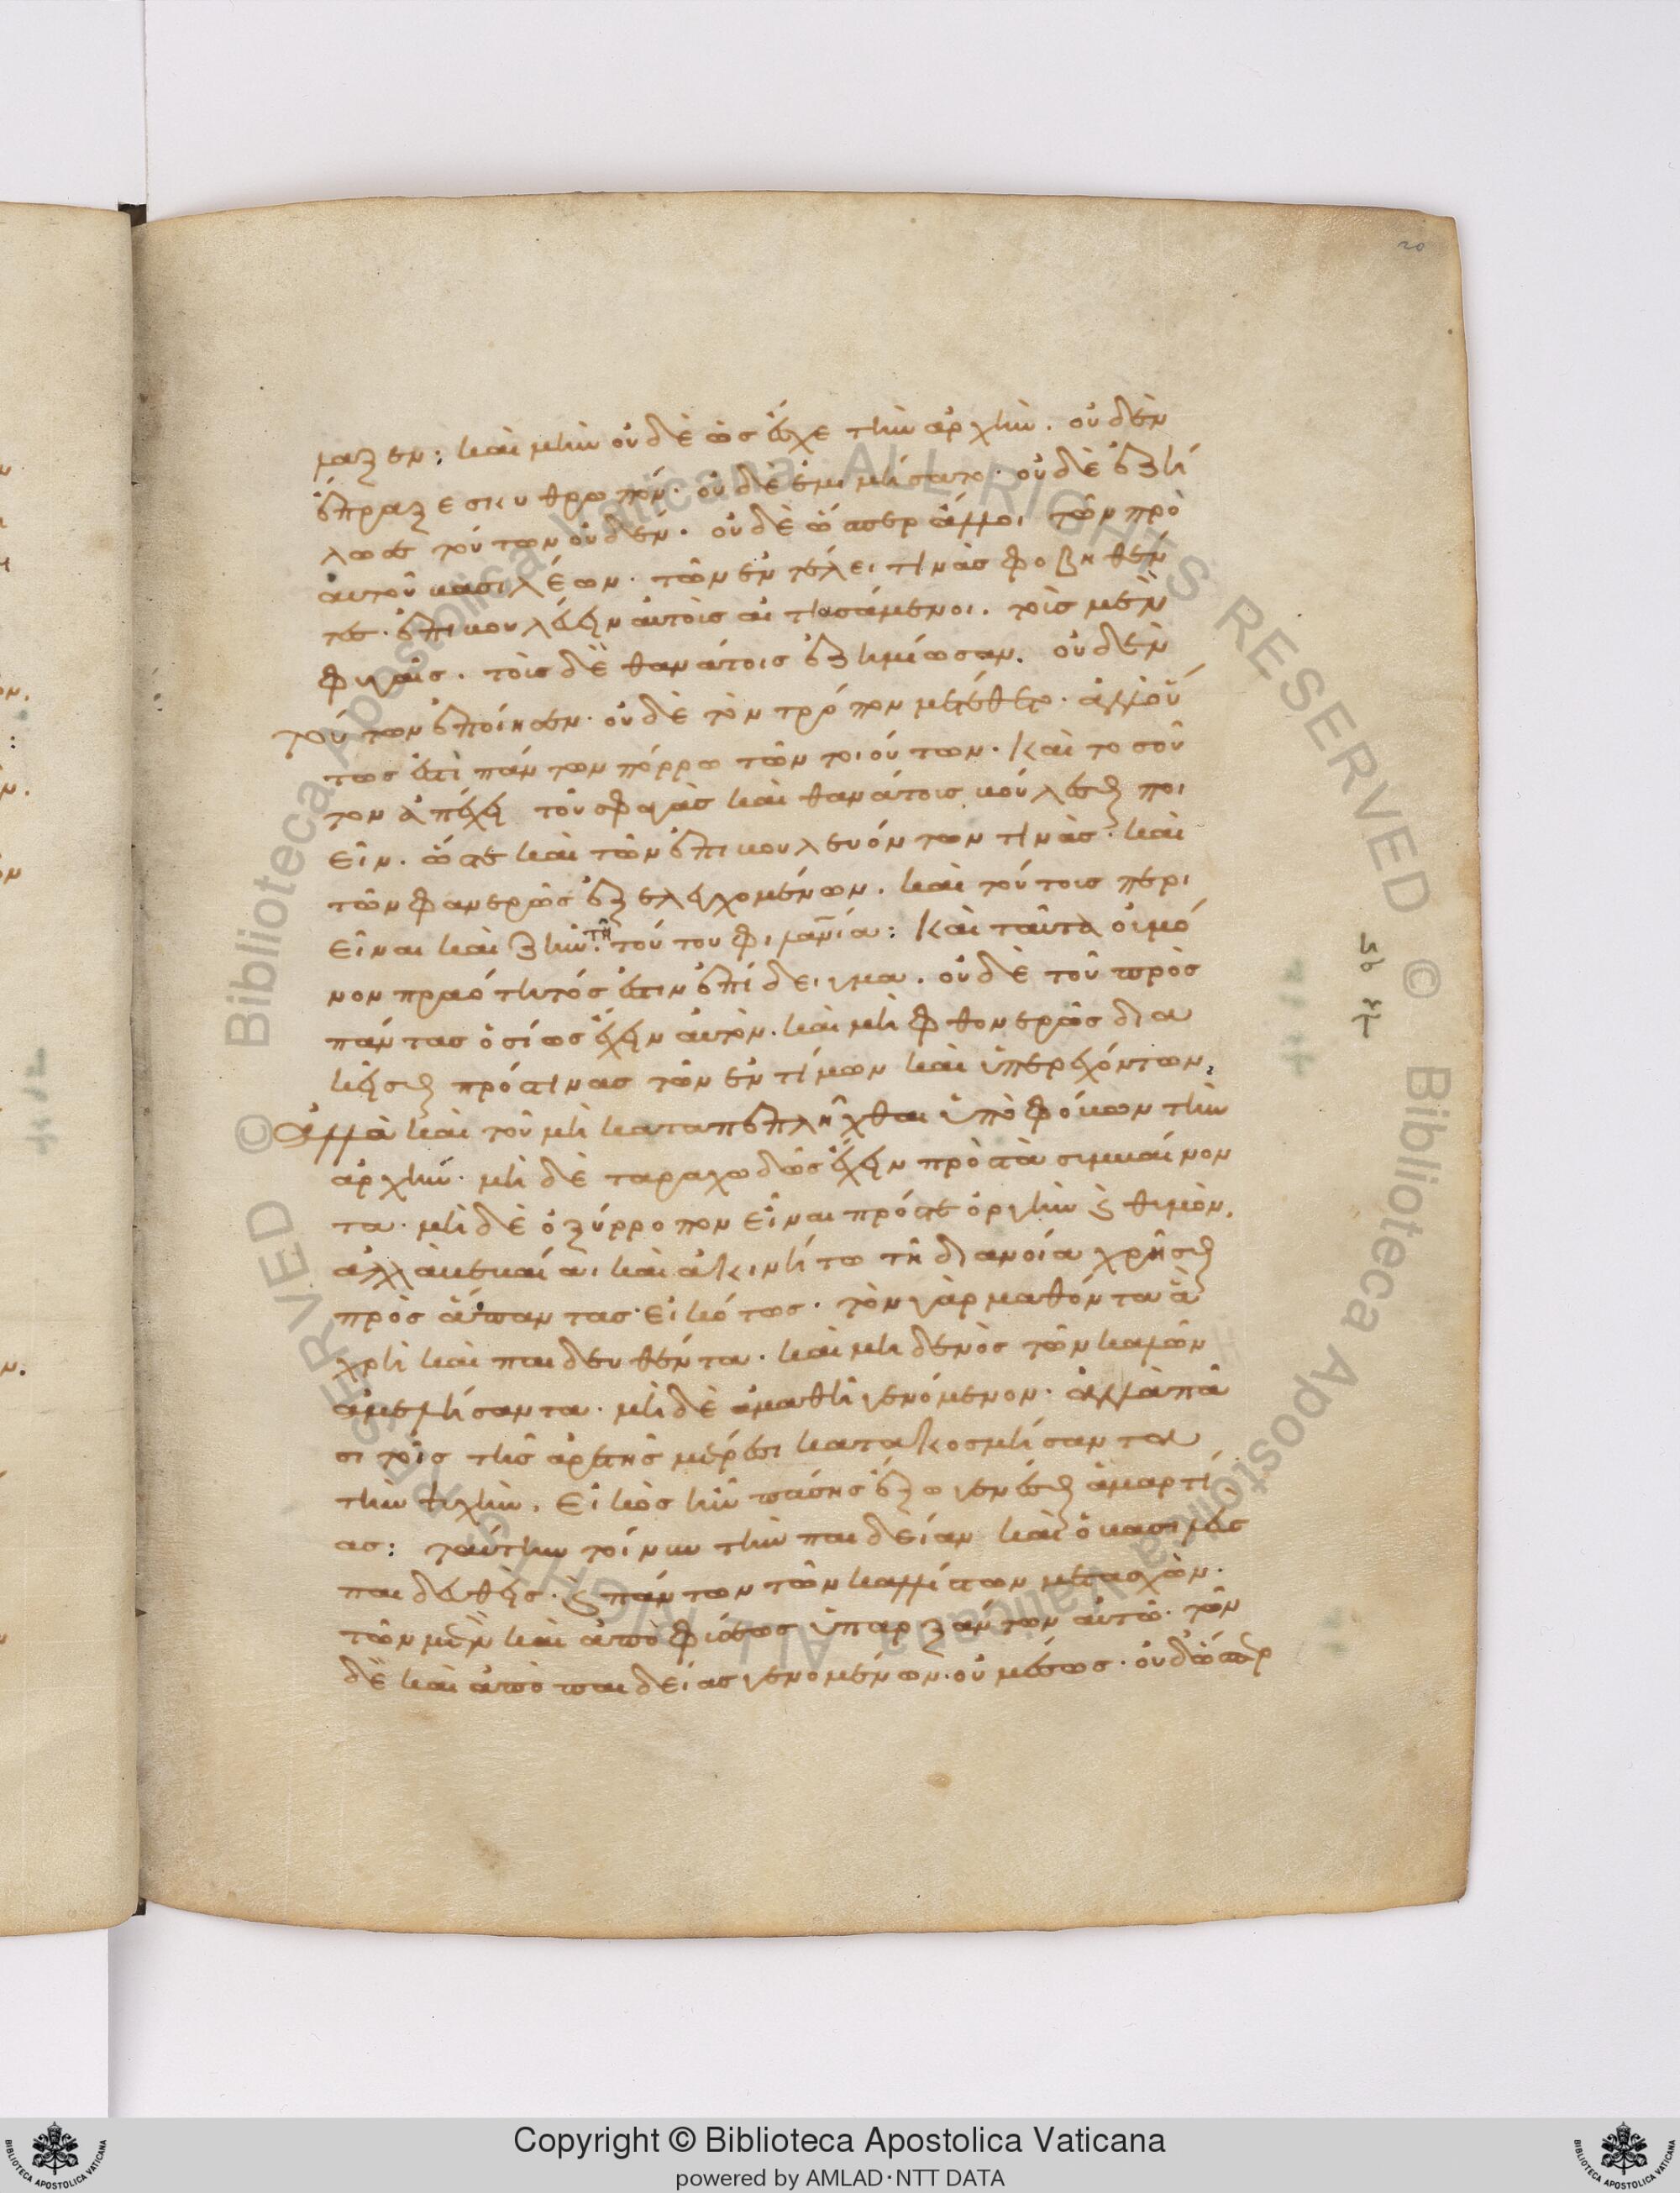 20
μαζεν: καὶ μὴν οὐδὲ ὡς ἔσχε τὴν ἀρχὴν. οὐδὲν
ἔπραξε σκυθρωπόν· οὐδὲ ἐμιμήσατο· οὐδὲ ἐζή
λωσε τούτων οὐδέν. οὐδὲ ὥσπερ ἄλλοι τῶν πρὸ
αυτοῦ βασιλέων· τῶν ἐν τέλει τινὰς φοβηθέν
τες· ἐπιβουλεύειν αὐτοῖς αἰτιασάμενοι. τοῖς μὲν
φυγαῖς. τοῖς δὲ θανάτοις ἐζημίωσαν. οὐδὲν
τούτων ἐποίησεν· οὐδὲ τὸν τρόπον μετέθετο· ἀλλ οὕ
τως ἐπὶ πάντων πόρρω τῶν τοιούτων· καὶ τοσοῦ
τον ἀπέχει τοῦ σφαγὰς καὶ θανάτοις βουλεύσει ποι
εῖν. ὥστε καὶ τῶν ἐπιβουλευόντων τινὰς· καὶ
τῶν φανερῶς ἐξελεγχομένων. καὶ τούτοις περι
εῖναι καὶ ζῆν τῇ τούτου φιλανία: καὶ ταῦτα οὐ μό
νον πραότητός ἐστιν ἐπίδειγμα. οὐδὲ τοῦ πρὸς
πάντας ὁσίως ἔχειν αὐτὸν. καὶ μὴ φθονερῶς δια
κεῖσθαι πρός τινας τῶν ἐντίμων καὶ ὑπερεχόντων.
ἀλλὰ καὶ τοῦ μὴ καταπεπλῆχθαι ὑπὸ φόβων τὴν
ἀρχήν· μὴ δὲ ταραχωδῶς ἔχειν πρὸς τὰ συμβαίνον
τα· μὴ δὲ ὀξύρροπον εἶναι πρός τε ὀργὴν κ θυμὸν.
ἀλλὰ βεβαία· καὶ ἀκινήτω τῇ διανοία χρῆσθαι
πρὸς ἅπαντας· εἰκότως. τὸν γὰρ μαθόντα ἃ
χρὴ καὶ παιδευθέντα. καὶ μηδενὸς τῶν καλῶν
ἀμελήσαντα· μὴ δὲ ἀμαθῆ γενόμενον· ἀλλὰ πᾶ
σι τοῖς τῆς ἀρετῆς μέρεσι κατακοσμήσαντα
τὴν ψυχὴν. εἰκὸς ἦν πάσης ἔξω γενέσθαι ἁμαρτί
ας: ταύτην τοίνυν τὴν παιδείαν καὶ ὁ βασιλεὺς
παιδευθεὶς· κ πάντων τῶν καλλίστων μετασχὼν·
τῶν μὲν καὶ ἀπὸ φύσεως ὑπαρξάντων αὐτῷ· τῶν
δὲ καὶ ἀπὸ παιδείας γενομένων· οὐ μέσως· οὐδ ὥσπερ
Copyright © Biblioteca Apostolica Vaticana
powered by AMLAD·NTT DATA